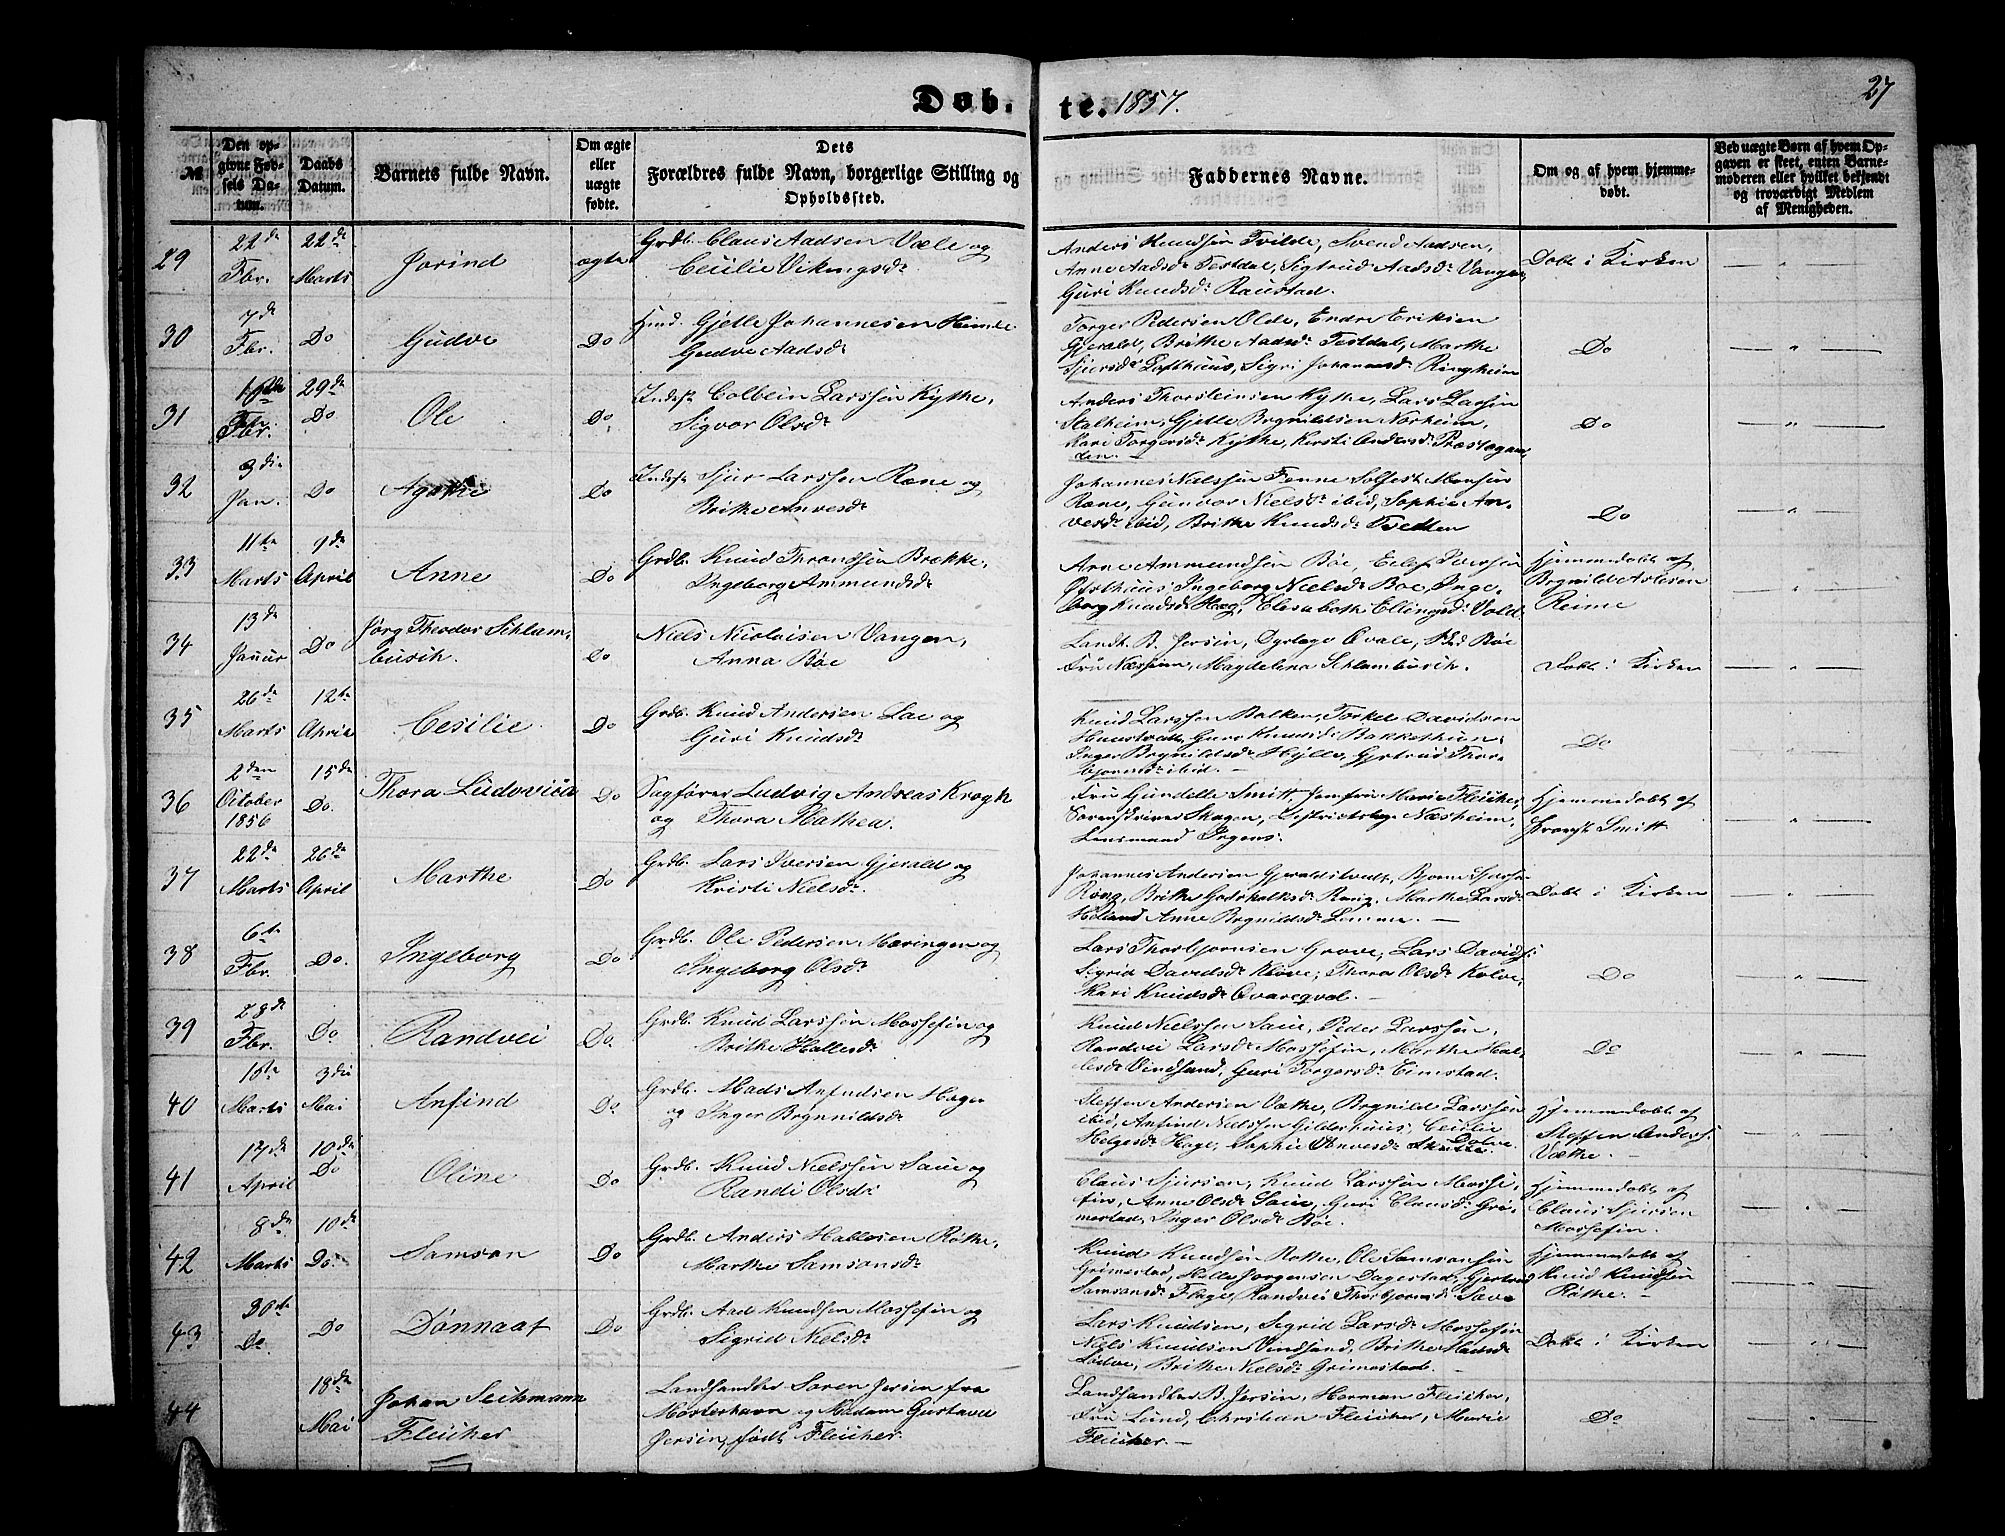 Døb. te. 1857.
27
№
Den opgivne Fødsels Datum.
Daabs Datum.
Barnets fulde Navn.
Om ægte eller uægte fødte.
Dets Forældres fulde Navn, borgerlige Stilling og Opholdssted.
Faddernes Navne.
Om og af hvem hjemmedøbt.
Ved uægte Børn af hvem Opgaven er skeet, enten Barnemoderen eller hvilket bekjendt og troværdigt Medlem af Menigheden.
29
22de Fbr.
22de Marts
Jorind
ægte
Grdb. Claus Aadsen Væle og
Cecilie Vikingsdr
Anders Knudsen Tvilde, Svend Aadsen,
Anne Aadsdr Testdal, Sigtrud Aadsdr Vangen,
Guri Knudsdr Raustad.
Døbt i Kirken
30
7de Fbr.
Do
Gudve
Do
Hmd. Gjelle Johannesen Himle
Gudve Aadsdr
Torger Pedersen Olde, Endre Eriksen
Gjerald, Brithe Aadsdr Testdal, Marthe
Sjursdr Lofthuus, Sigri Johannesdr Ringheim
Do
31
Fbr.
29de Do
Ole
Do
Indst. Colbein Larssen Kythe,
Sigvor Olsdr
Anders Thorsteinsen Kythe, Lars Larsen
Stalheim, Gjelle Brynildsen Norheim,
Kari Torgersdr Kythe, Kersti Andersdr Præstegaarden.
Do
32
3die Jan.
Do
Agathe
Do
Indst. Sjur Larssen Røne og
Brithe Anvesdr
Johannes Nielssen Fenne Solfest Monsen
Røne, Gunvor Nielsdr ibid, Sophie Anvesdr ibid, Brithe Knudsdr Tvetten
Do
33
11te Marts
9de April
Anne
Do
Grdb. Knud Throndsen Brekke,
Ingeborg Ammundsdr
Arne Ammundsen Bøe,
Ingeborg Nielsdr Bøe, Ingeborg Knudsdr Hæg, Elisabeth Ellingsdr Vold
Hjemmedøbt af
Brynild Aslesen
Reime
34
13de Januar
Do
Jørg Theodor Schlambusch.
Do
Niels Nicolaisen Vangen,
Anna Bøe
Landh. B. Jersin, Dyrlæge Qvale, Bøe
Fru Næssen, Magdelena Schlambusch.
Døbt i Kirken
35
26de Marts
12te April
Cesilie
Do
Grdb. Knud Andersen Lae og
Guri Knudsdr
Knud Larssen Balken, Torkel Davidsen
Guro Knudsdr Bakkethun,
Inger Brynildsdr Hylle, Gjertrud Thorbjørnsdr ibid.
Do
36
2den October 1856
15de Do.
Thora Ludovica
Do
Sagfører Ludvig Andreas Krogh
og Thora Mathea.
Fru Gundelle Smitt, Jomfru Marie Fleicher,
Sorenskriver Skagen, Districtslæge Næsheim,
Lensmand Irgens.
Hjemmedøbt af
Provst Smitt
37
22de Marts
26de April
Marthe
Do
Grdb. Lars Iversen Gjerald og
Kristi Nielsdr
Johannes Andersen Gjeraldstvedt, Bjorne Sjursen
Rong, Brithe Godskalksdr Rong, Marthe Larsdr
Anne Brynildsdr Lemme.
Døbt i Kirken
38
6te Fbr.
Do.
Ingeborg
Do
Grdb. Ole Pedersen Møringen og
Ingeborg Olsdr
Lars Thorbjørnsen Grove, Lars Davids.
Sigrid Davidsdr Kløve, Thora Olsdr Kolve,
Kari Knudsdr Qvareqval.
Do
39
28de Fbr.
Do
Randvei
Do.
Grdb. Knud Larssen Mossefin og
Brithe Hallesdr
Knud Nielssen Saue, Peder Larssen,
Randvei Larsdr Mossefin, Marthe Hallesdr Vindsand, Guri Torgersdr Eimstad.
Do
40
Marts
3die Mai
Anfind
Do
Grdb. Mads Anfindsen Hæge
og Inger Brynnildsdr
Steffen Andersen Væthe, Brynild Larssen
ibid, Anfind Nielssen Gilderhuus, Cecilie
Helgesdr Hage, Sophie Anvesdr Dolve.
Hjemmedøbt af
Steffen Anderss.
Væthe.
41
17de April
10de Do
Oline
Do
Grdb. Knud Nielssen Saue og
Randi Olsdr
Claus Sjursen, Knud Larssen Mossefin, Anne Olsdr Saue, Guri Clausdr Grimestad, Inger Olsdr Bøe.
Hjemmedøbt af
Claus Sjursen
Mossefin.
42
8de Marts
10de Do.
Samson
Do
Grdb. Anders Hallesen Røthe,
Marthe Samsonsdr
Knud Knudsen Rothe, Ole Samsonsen
Grimestad, Halle Jorgensen Dagestad, Gjertrud
Samsonsdr Flage, Randvei Thorbjornsdr Save
Hjemmedøbt af
Knud Knudsen
Røthe.
43
30te Do.
Do
Dønnaat
Do
Grdb. Aad Knudsen Mossefin og
Sigrid Nielsdr
Lars Knudsen, Sigrid Larsdr Mossefin
Niels Knudsen Vindsand, Brithe
Brithe Nielsdr Grimestad.
Døbt i Kirken
44
18de Mai
Johan Seckmann
Fleicher
Landhandler Søren Jersin fra
Mosterhavn og Madam Gustava
Jersin, født Fleicher.
Landhandler B. Jersin, Herman Fleicher,
Fru Lund, Christian Fleicher, Marie
Fleicher.
Do